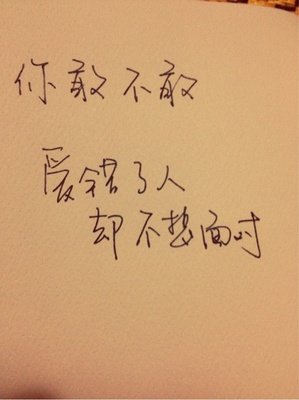 你敢不敢
爱错了人
却不想面对